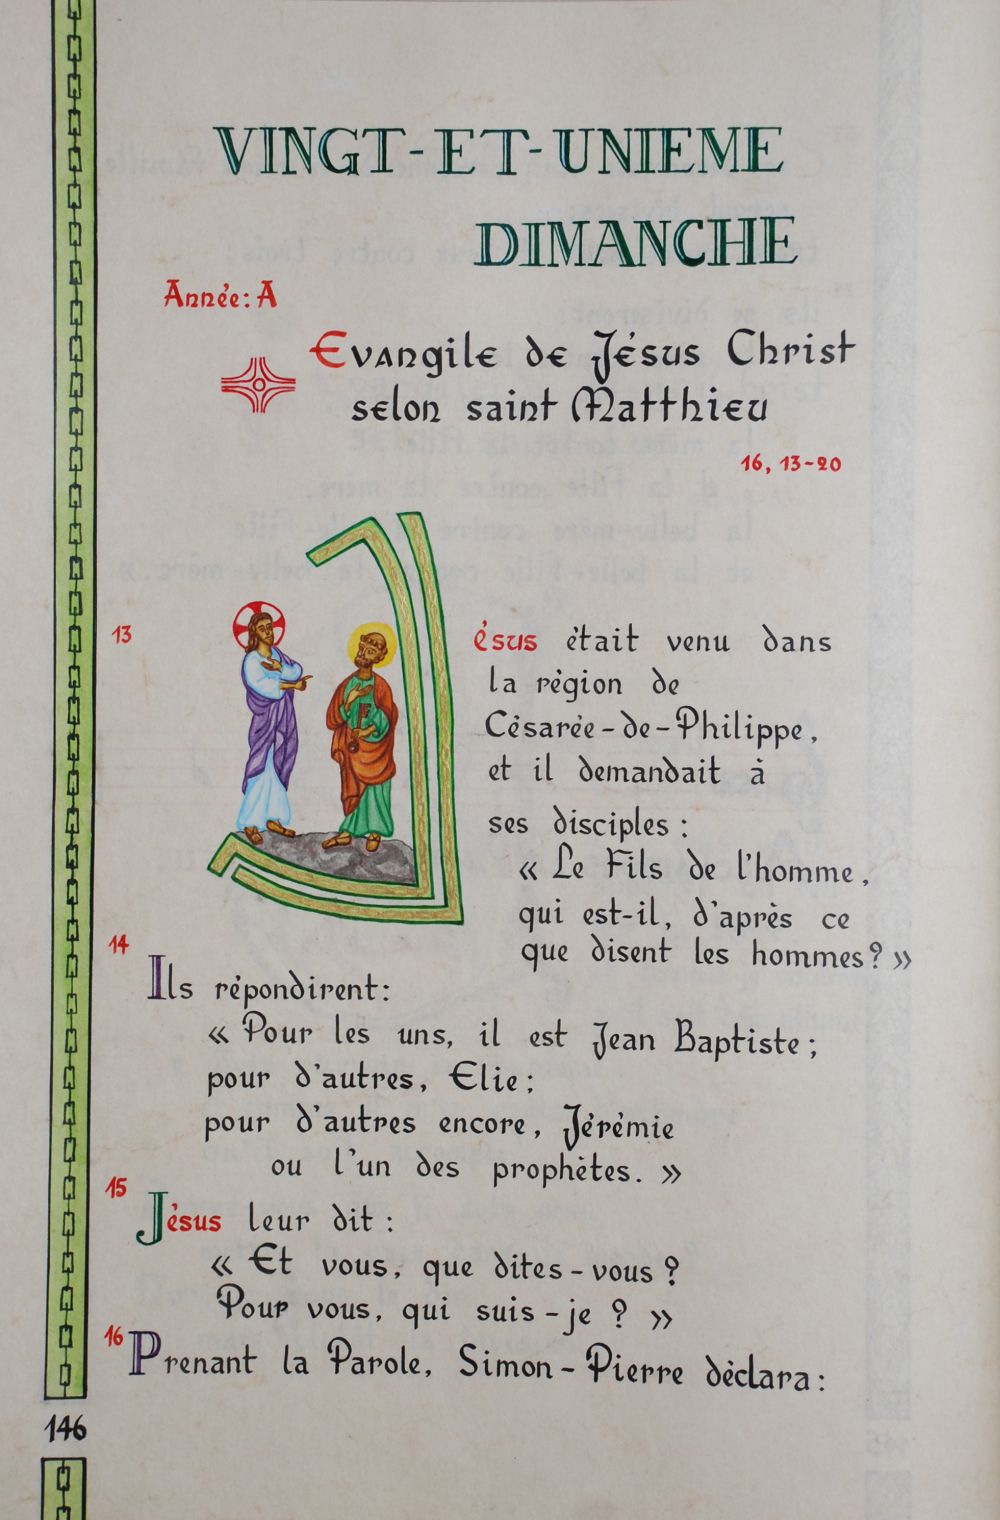 VINGT-ET-UNIEME
DIMANCHE
Année: A
Evangile de Jésus Christ
selon saint Matthieu
16, 13-20
13
Jésus était venu dans
la région de
Césarée-de-Philippe,
et il demandait à
ses disciples :
« Le Fils de l'homme,
qui est-il, d'après ce
que disent les hommes? »
14
Ils répondirent:
« Pour les uns, il est Jean Baptiste ;
pour d'autres, Elie ;
pour d'autres encore, Jérémie
ou l'un des prophètes. »
15
Jésus leur dit :
« Et vous, que dites-vous ?
Pour vous, qui suis-je ? »
16
Prenant la Parole, Simon-Pierre déclara :
146